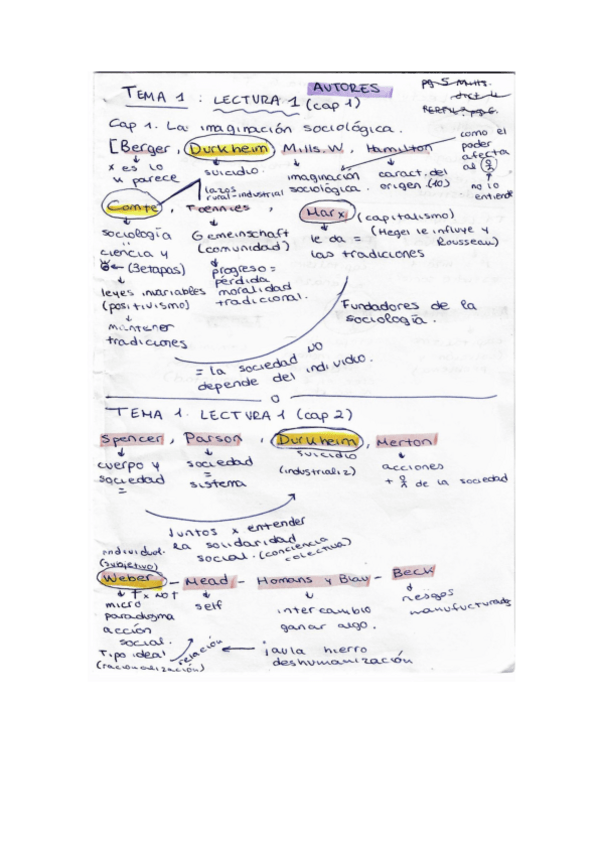 AUTORES
TEMA 1 : LECTURA 1 (cap 1)
Cap 1. La imaginación sociológica.
[Berger, Durkheim, Mills. W, Hamilton
como el poder afecta al
no lo entiende
x es lo
parece
suicidio.
lazos
rural-industrial
imaginación sociológica.
caract. del origen
Comte, Toennies, Marx (capitalismo)
(Hegel le influye y Rousseau)
sociología
=
ciencia y
(3 etapas)
leyes invariables
(positivismo)
mantener
tradiciones
Gemeinschaft
(comunidad)
progreso =
pérdida
moralidad
tradicional.
le da =
las tradiciones
Fundadores de la
sociología.
= la sociedad NO
depende del individio.
TEMA 1. LECTURA 1 (cap 2)
Spencer, Parson, Durkheim, Merton
cuerpo y
sociedad
=
sociedad
=
sistema
suicidio
(industrializ)
acciones
de la sociedad
Juntos x entender
la solidaridad
social. (conciencia
colectiva)
individual.
(subjetivo)
Weber - Mead - Homans y Blau - Beck
micro
paradigma
acción
social.
Tipo ideal
(racionalización)
self
relación
intercambio
ganar algo.
riesgos
manufucturados
jaula hierro
deshumanización